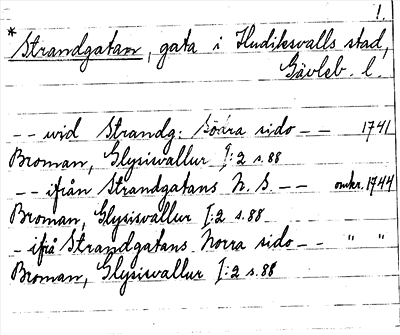 1.
* Strandgatan, gata i Hudiksvalls stad,
Gävleb. l.
-- wid Strandg: Södra sido -- 1741
Broman, Glysisvallur I:2 s. 88
-- ifrån Strandgatans N. S. -- omkr. 1744
Broman, Glysisvallur I:2 s. 88
- ifrå Strandgatans Norra sido -- " "
Broman, Glysisvallur I:2 s. 88